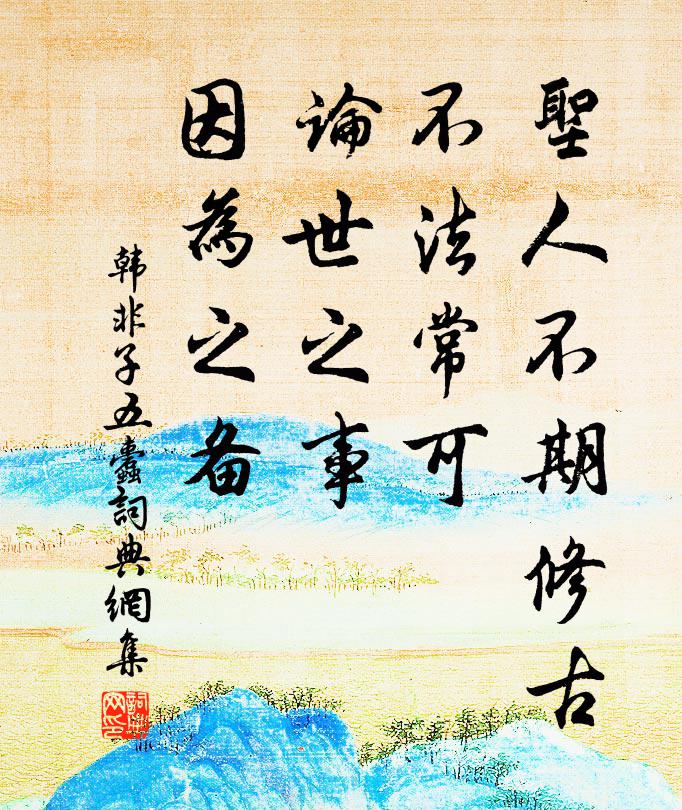 聖人不期修古
不法常可
論世之事
因為之备
韩非子五蠹詞典網集